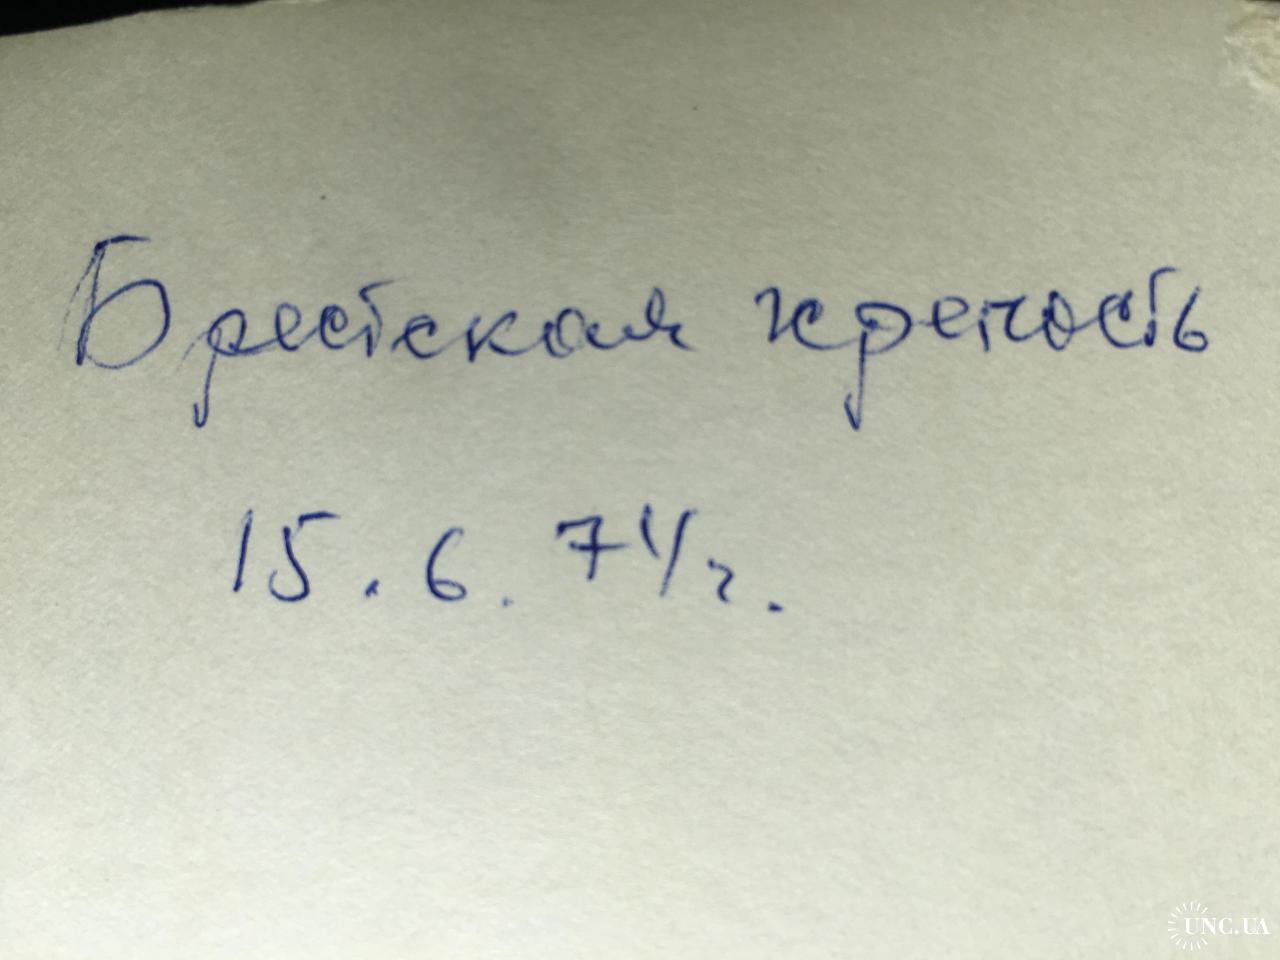 Брестская крепость
15.6.74г.
UNC.UA